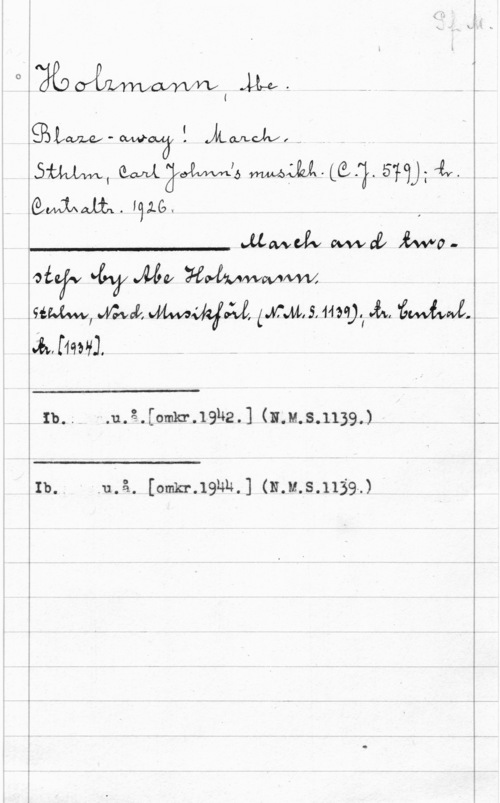 Pf. M.
Holzmann, Abe.
Blaze-away! March.
Sthlm, Carl Johnn's musikh. (C.J. 579); tr.
Centraltr. 1926.
March and two-
step by Abe Holzmann.
Sthlm, Nord. Musikförl. (N.M.S. 1139); tr. Central-
tr. [1934].
Ib. .u.å.[omkr.1942.] (N.M.S.1139.)
Ib. .u.å. [omkr.1944.] (N.M.S.1139.)